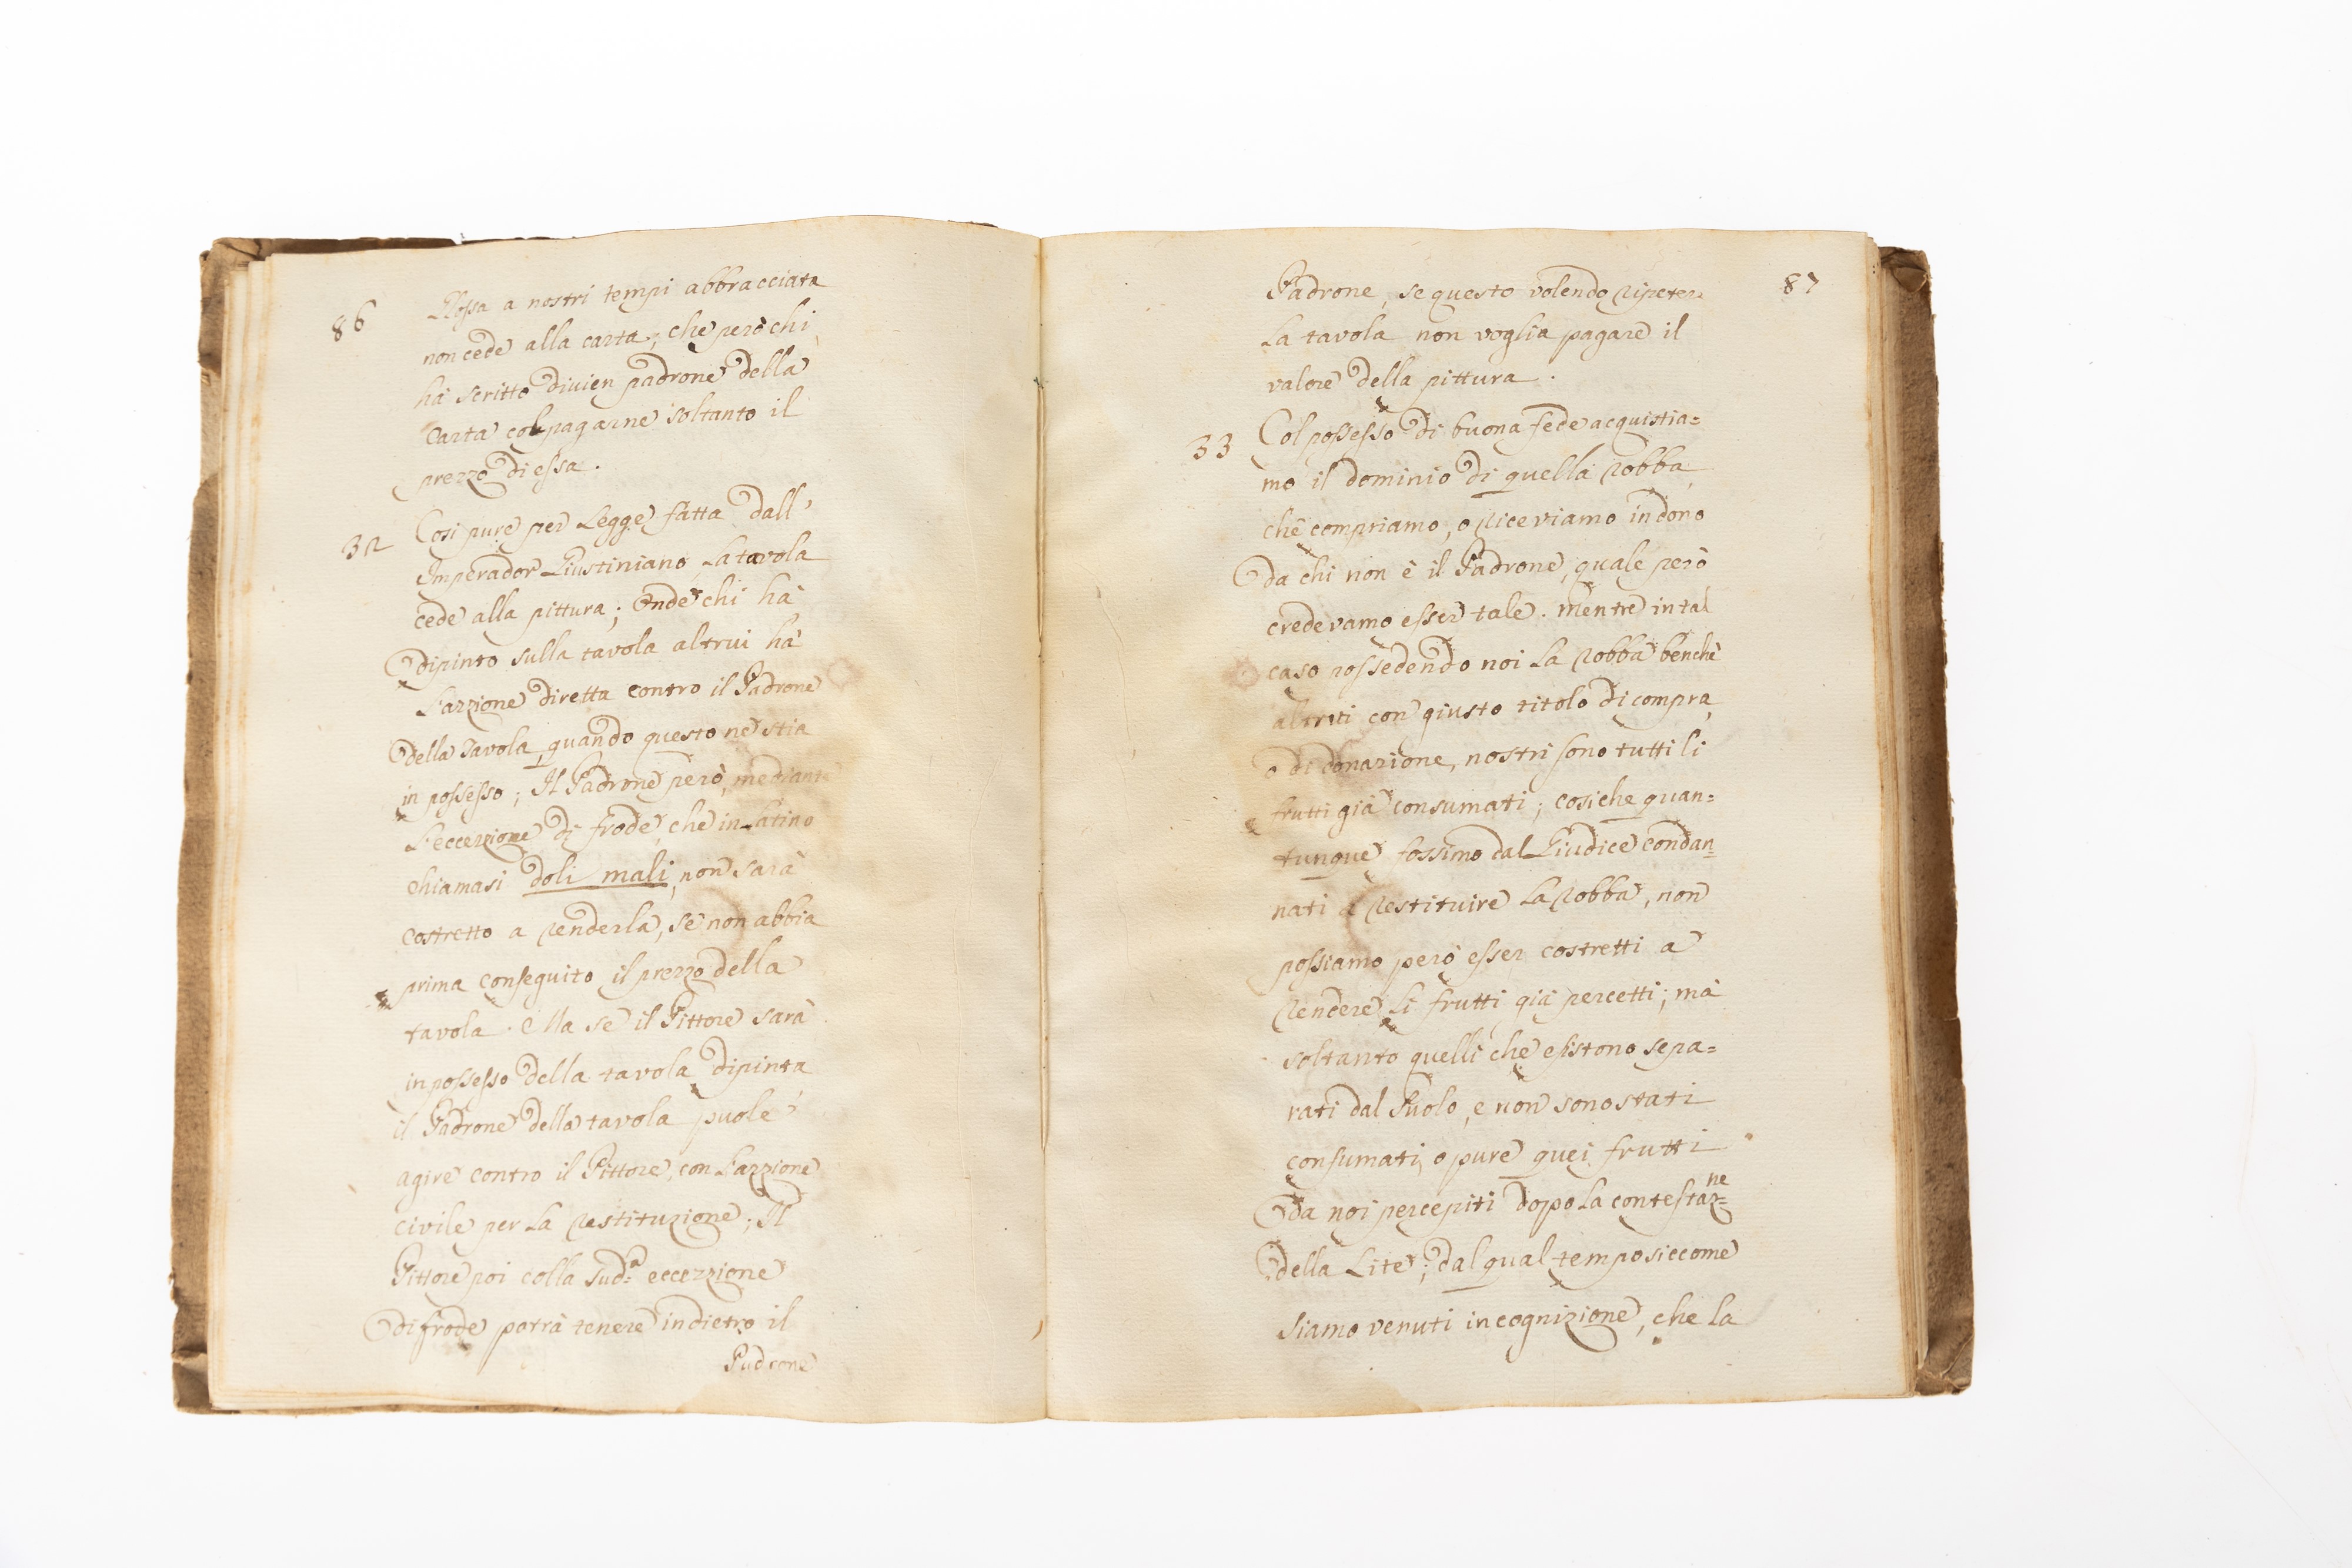 86
Glossa a nostri tempi abbracciata
non cede alla carta; che però chi
hà scritto divien padrone della
Carta col pagarne soltanto il
prezzo di essa.
32
Così pure per Legge fatta dall'
Imperador Giustiniano La tavola
cede alla pittura; Onde chi hà
dipinto sulla tavola altrui hà
L'azzione diretta contro il Padrone
della Tavola, quando questo ne stia
in possesso; Il Padrone però, mediante
L'eccezzione di frode, che in Latino
chiamasi doli mali, non sarà
costretto a renderla, se non abbia
prima conseguito il prezzo della
tavola. Ma se il Pittore sarà
in possesso della tavola dipinta
il Padrone della tavola puole
agire contro il Pittore, con L'azzione
civile per La restituzione; Il
Pittore poi colla sud.a eccezzione
di frode potrà tenere indietro il
Padrone
87
Padrone, se questo volendo ripetere
La tavola non voglia pagare il
valore della pittura.
33
Col possesso di buona fede acquistia=
mo il dominio di quella robba
che compriamo, o riceviamo in dono
da chi non è il Padrone, quale però
credevamo esser tale. mentre in tal
caso possedendo noi La robba benchè
altrui con giusto titolo di compra,
o di donazione, nostri sono tutti li
frutti già consumati; cosiche quan=
tunque fossimo dal Giudice condan=
nati a restituire La robba, non
possiamo però esser costretti a
rendere Li frutti già percetti; mà
soltanto quelli che esistono sepa=
rati dal Suolo, e non sono stati
consumati, o pure quei frutti
da noi percepiti dopo La contestaz=ne
della Lite; dal qual tempo siccome
siamo venuti in cognizione, che la